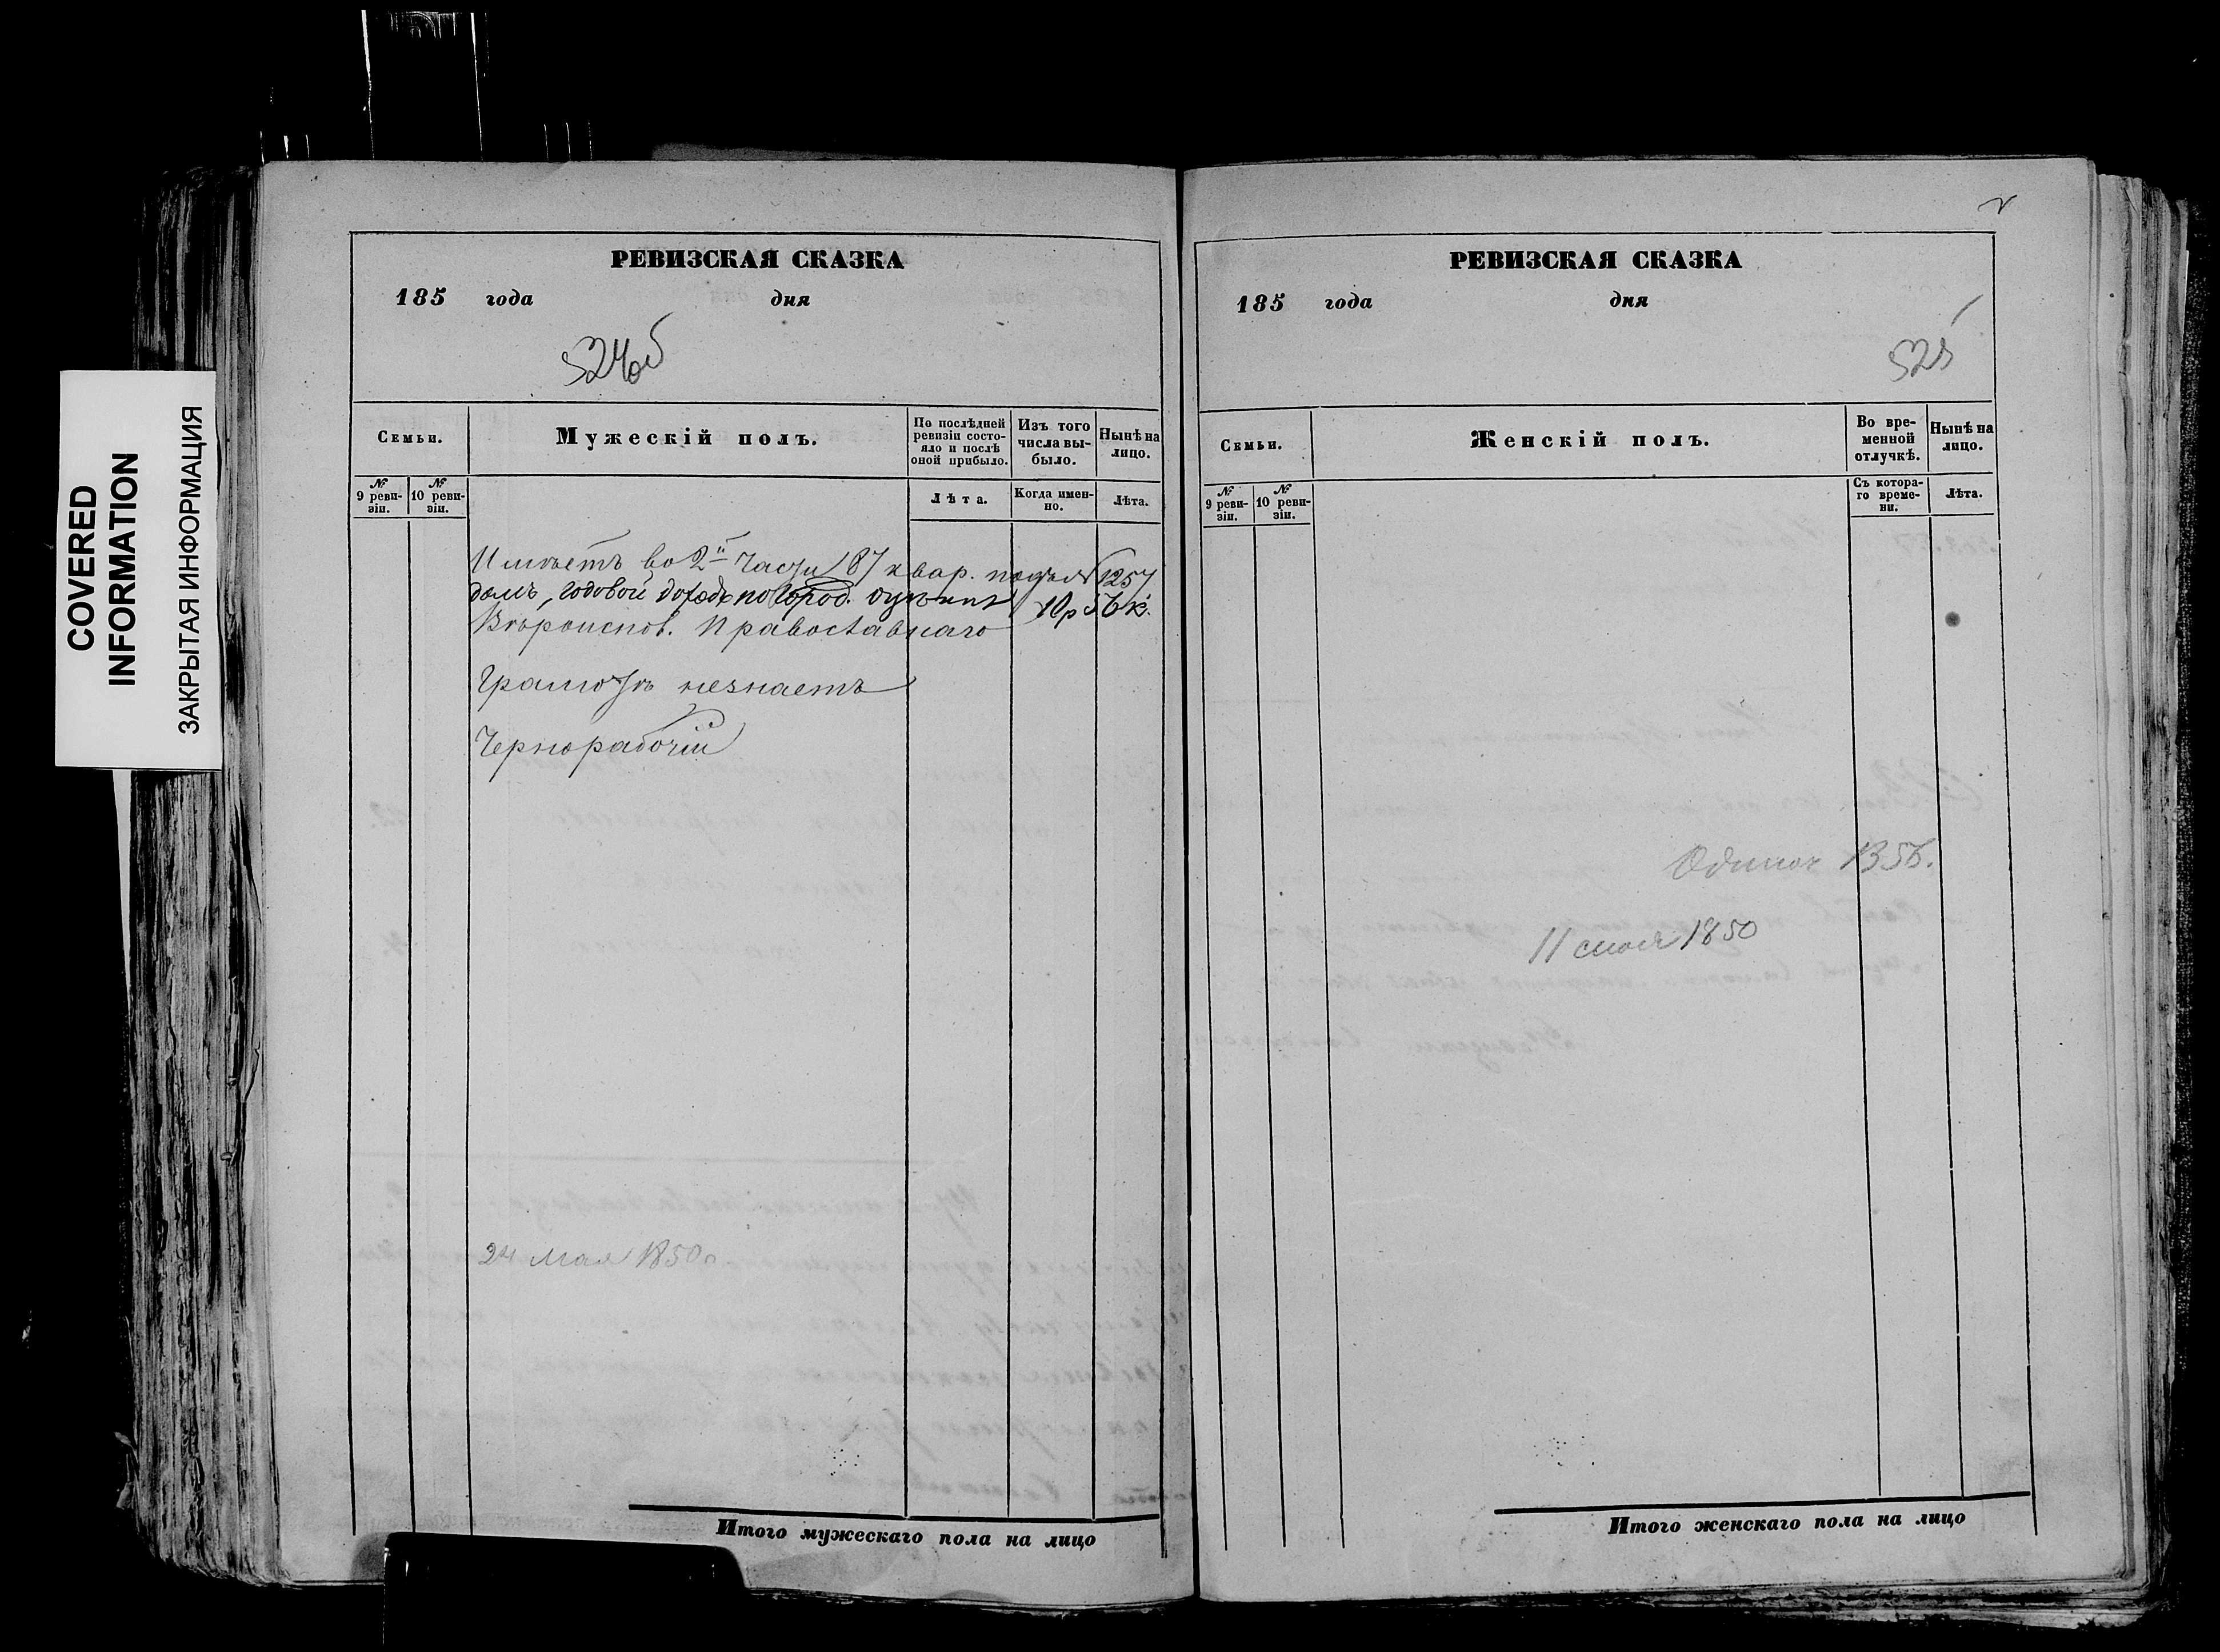 COVERED
INFORMATION
ЗАКРЫТАЯ ИНФОРМАЦИЯ
РЕВИЗСКАЯ СКАЗКА
185 года дня
524об
Семьи.
Мужескій полъ.
По послѣдней ревизіи состояло и послѣ оной прибыло.
Изъ того числа выбыло.
Нынѣ на лицо.
№ 9 ревизіи.
№ 10 ревизіи.
Лѣта.
Когда именно.
Лѣта.
Имѣетъ во 2й части 87 квар. подъ № 1257
домъ, годовой доходъ по город. оцѣнкѣ 10 р 56 к.
Вѣроиспов. Православнаго
Грамотѣ незнаетъ
Чернорабочій
24 мая 1850 г.
Итого мужескаго пола на лицо
РЕВИЗСКАЯ СКАЗКА
185 года дня
525
Семьи.
Женскій полъ.
Во временной отлучкѣ.
Нынѣ на лицо.
№ 9 ревизіи.
№ 10 ревизіи.
Съ котораго времени.
Лѣта.
11 1850
Итого женскаго пола на лицо